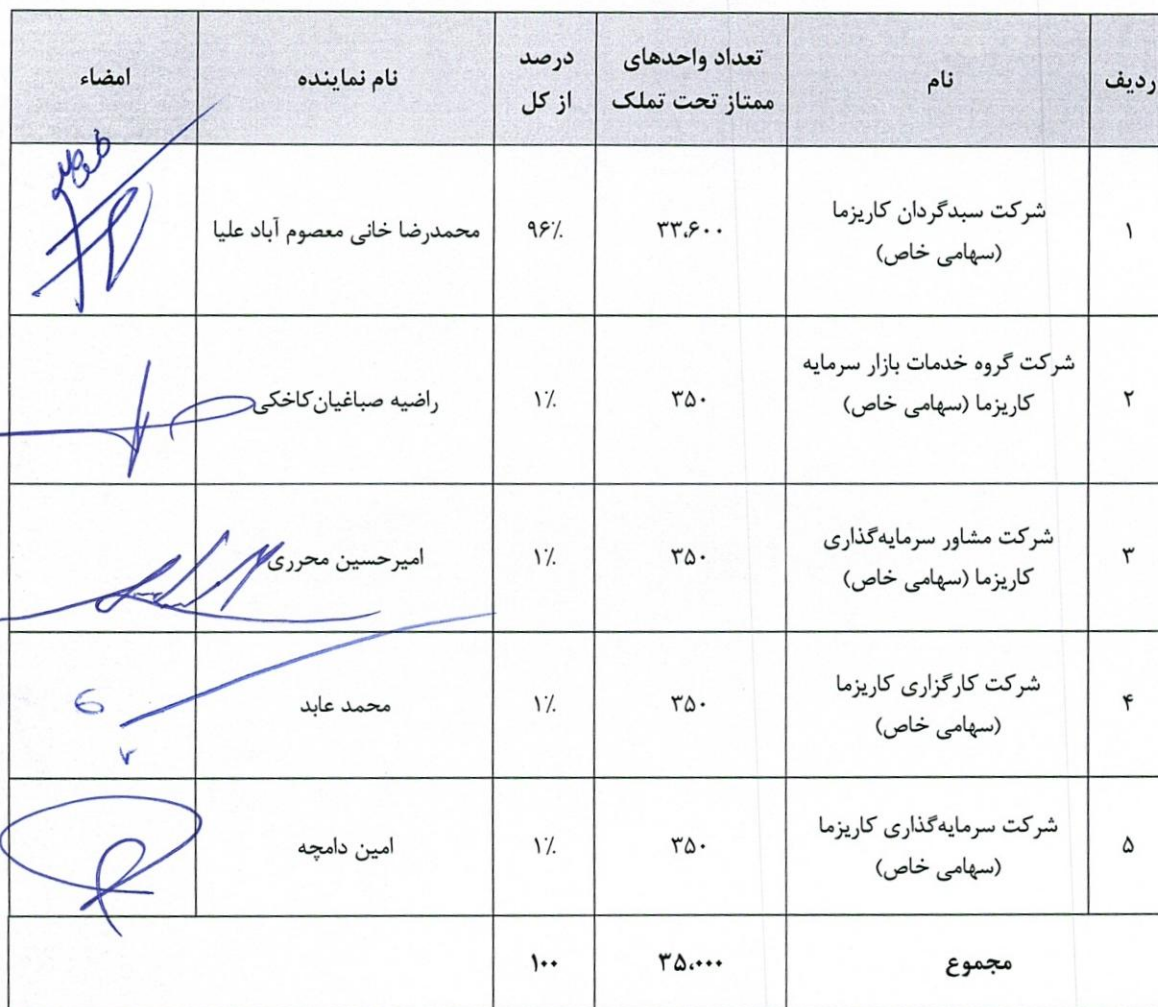 ردیف
نام
تعداد واحدهای
ممتاز تحت تملک
درصد
از کل
نام نماینده
امضاء
۱
شرکت سبدگردان کاریزما
(سهامی خاص)
۳۳،۶۰۰
۹۶٪
محمدرضا خانی معصوم آباد علیا
۲
شرکت گروه خدمات بازار سرمایه
کاریزما (سهامی خاص)
۳۵۰
۱٪
راضیه صباغیان‌کاخکی
۳
شرکت مشاور سرمایه‌گذاری
کاریزما (سهامی خاص)
۳۵۰
۱٪
امیرحسین محرری
۴
شرکت کارگزاری کاریزما
(سهامی خاص)
۳۵۰
۱٪
محمد عابد
۵
شرکت سرمایه‌گذاری کاریزما
(سهامی خاص)
۳۵۰
۱٪
امین دامچه
مجموع
۳۵،۰۰۰
۱۰۰